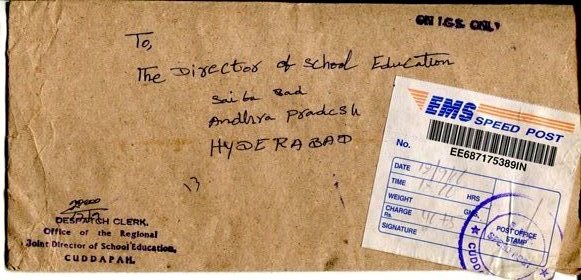 ON I.G.S. ONLY
To,
The Director of School Education
Saifabad
Andhra Pradesh
HYDERABAD
DESPATCH CLERK.
Office of the Regional
Joint Director of School Education,
CUDDAPAH.
EMS SPEED POST
No.
EE687175389IN
DATE
TIME HRS
WEIGHT GM
CHARGE
Rs.
SIGNATURE
POST OFFICE
STAMP